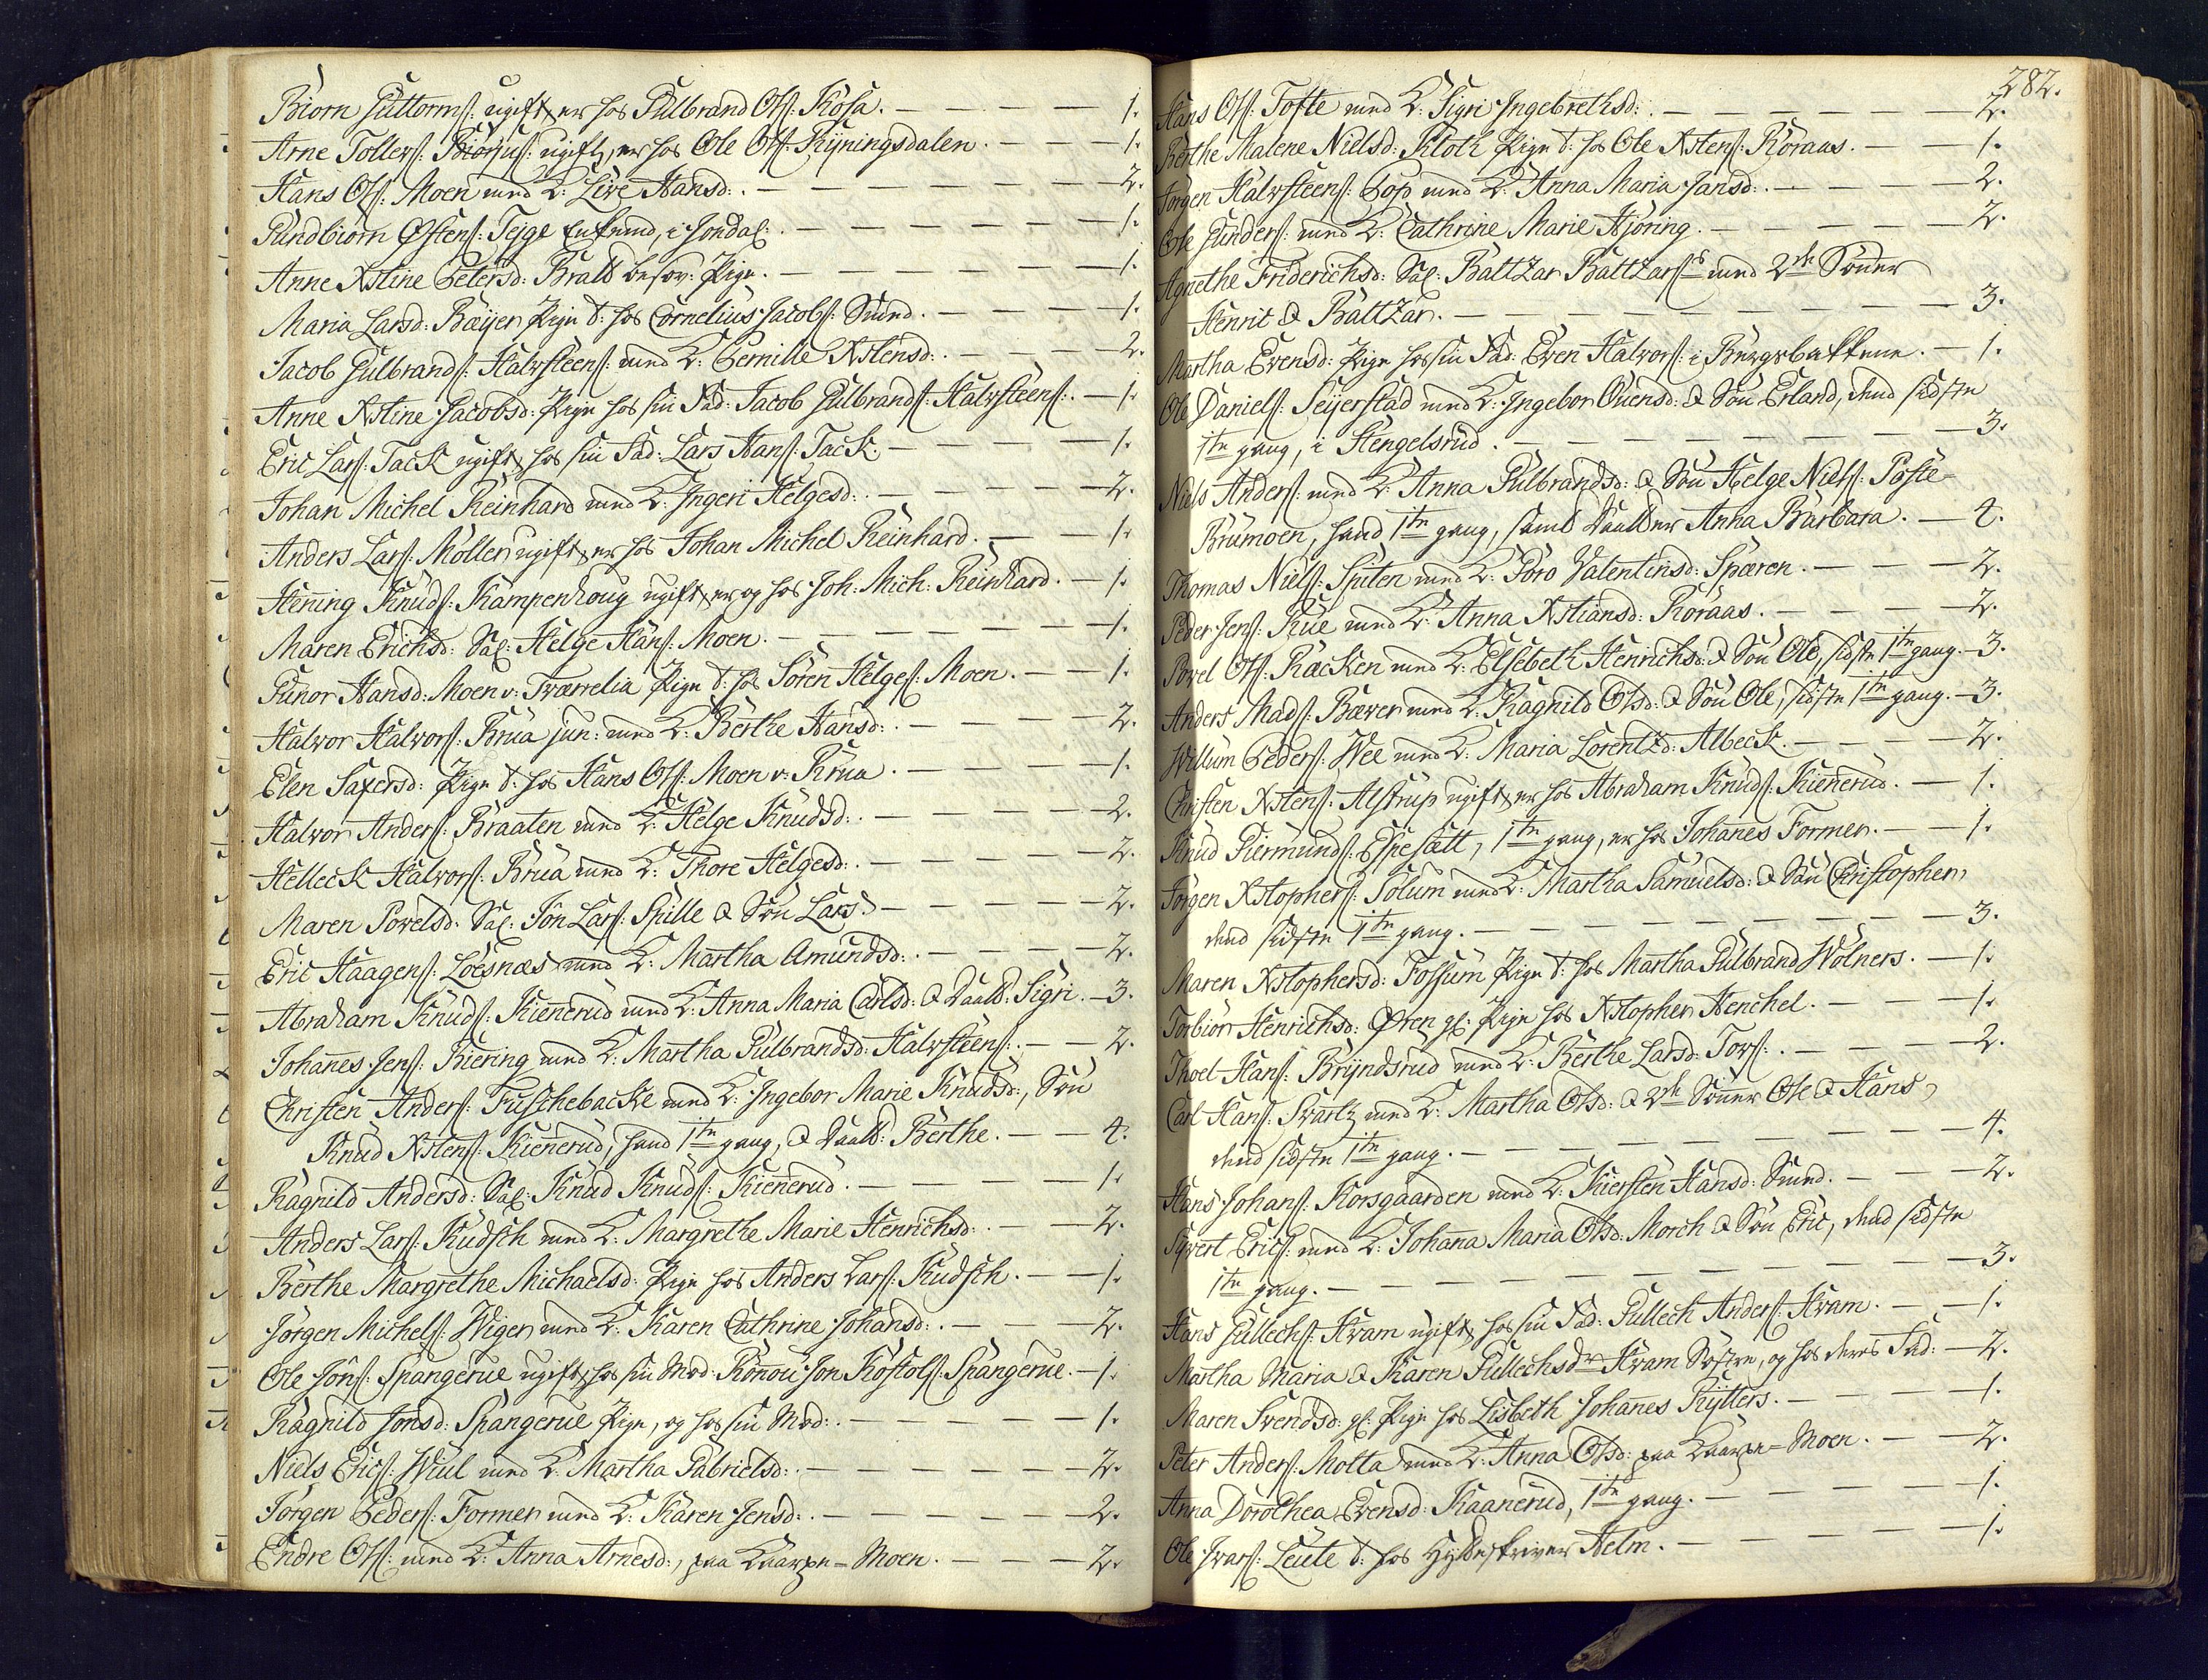 Biorn Guttorms: ugift, er hos Gulbrand Ols: Kosa. — 1.
Arne Tollevs: ugift, er hos Ole Ols: Kyningsdalen. — 1.
Hans Ols: Moen med K: Live Hansd: — 2.
Gundbiorn Østens: Tejge Enkemd, i Jondal: — 1.
Anne Xstine Petersd: Brall besov: Pige. — 1.
Maria Larsd: Bæijer Pige t: hos Cornelius Jacobs: Smed. — 1.
Jacob Gulbrands: Halvsteens: med K: Pernille Xstensd: — 2.
Anne Xstine Jacobsd: Pige hos sin Fad: Jacob Gulbrands: Halvsteens: — 1.
Eric Lars: Tack ugift, hos sin Fad: Lars Hans: Tack. — 1.
Johan Michel Reinhard med K: Ingeri Helgesd: — 2.
Anders Lars: Møller ugift, er hos Johan Michel Reinhard. — 1.
Hening Knuds: Kampenhoug ugift, er og hos Joh: Mich: Reinhard. — 1.
Maren Erichsd: Sal: Helge Hans: Moen. — 1.
Gunor Hansd: Moen v: Tværrelia Pige t: hos Sören Helges: Moen. — 1.
Halvor Halvors: Brua jun: med K: Berthe Hansd: — 2.
Elen Saxersd: Pige t: hos Hans Ols: Moen v: Brua. — 1.
Halvor Anders: Braaten med K: Helge Knudsd: — 2.
Helleck Halvors: Brua med K: Thore Helgesd: — 2.
Maren Povelsd: Sal: Jon Lars: Spille & Søn Lars. — 2.
Eric Haagens: Loesnæs med K: Martha Amundsd: — 2.
Abraham Knuds: Kienerud med K: Anna Maria Carlsd: & Daatt: Sigri. — 3.
Johanes Jens: Biering med K: Martha Gulbrandsd: Halvsteens: — 2.
Christen Anders: Fuschebacke med K: Ingebor Marie Knudsd:, Søn
Knud Xstens: Kienerud, hand 1te gang, & Daatt: Berthe. — 4.
Ragnild Andersd: Sal: Knud Knuds: Kienerud. — 1.
Anders Lars: Kudsch med K: Margrethe Marie Henrichsd: — 2.
Berthe Margrethe Michaelsd: Pige hos Anders Lars: Kudsch. — 1.
Jørgen Michels: Wiger med K: Karen Cathrine Johansd: — 2.
Ole Jons: Spangerue ugift, hos sin Mod: Ronou Jon Kostols: Spangerue. — 1.
Ragnild Jonsd: Spangerue Pige, og hos sin Mod: — 1.
Niels Erics: Wiul med K: Martha Gabrielsd: — 2.
Jørgen Peders: Former med K: Karen Jensd: — 2.
Endre Ols: med K: Anna Arnesd:, paa Qværne-Moen. — 2.
282.
Hans Ols: Tofte med K: Sigri Ingebrethsd: — 2.
Berthe Malene Nielsd: Kloth Pige t: hos Ole Xstens: Roraas. — 1.
Jørgen Halvsteens: Pop med K: Anna Maria Jansd: — 2.
Ole Gunders: med K: Cathrine Marie Hjøring. — 2.
Agnethe Friderichsd: Sal: Baltzar Baltzars: med 2de Sönner
Henric & Baltzar. — 3.
Martha Evensd: Pige hos sin Fad: Even Halvors: i Bergsbakkene. — 1.
Ole Daniels: Seijerstad med K: Ingebor Ouensd: & Søn Erland, dend sidste
1te gang, i Stengelsrud. — 3.
Niels Anders: med K: Anna Gulbrandsd: & Søn Helge Niels: Poste-
Brumoen, hand 1te gang, samt Daatter Anna Barbara. — 4.
Thomas Niels: Spiten med K: Goro Valentinsd: Spæren. — 2.
Peder Jens: Kue med K: Anna Xstiansd: Roraas. — 2.
Povel Ols: Racken med K: Elsebeth Henrichsd: & Søn Ole, sidste 1te gang. — 3.
Anders Mads: Bæver med K: Ragnild Olsd: & Søn Ole, sidste 1te gang. — 3.
Willum Peders: Wee med K: Maria Lorentzd: Albeck. — 2.
Christen Xstens: Alstrup ugift, er hos Abraham Knuds: Kienerud. — 1.
Knud Giermunds: Espesætt, 1te gang, er hos Johanes Former. — 1.
Jørgen Xstophers: Solum med K: Martha Samuelsd: & Søn Christopher,
dend sidste 1te gang. — 3.
Maren Xstophersd: Fossum Pige t: hos Martha Gulbrand Wolners. — 1.
Torbiör Henrichsd: Øren gl: Pige hos Xstopher Henchel. — 1.
Thoel Hans: Bryndsrud med K: Berthe Larsd: Tors: — 2.
Carl Hans: Svartz med K: Martha Olsd: & 2de Sönner Ole & Hans,
dend sidste 1te gang. — 4.
Hans Johans: Korsgaarden med K: Kiersten Hansd: Smed. — 2.
Syvert Erics: med K: Johana Maria Olsd: Morch & Søn Eric, dend sidste
1te gang. — 3.
Hans Gullechs: Hvam ugift, hos sin Fad: Gullech Anders: Hvam. — 1.
Martha Maria & Karen Gullechsdr Hvam Søstre, og hos deres Fad: — 2.
Maren Svendsd: gl: Pige hos Lisbeth Johanes Rytters. — 1.
Peter Anders: Motta med K: Anna Olsd: paa Qværne-Moen. — 2.
Anna Dorothea Evensd: Kaanerud, 1te gang. — 1.
Ole Ivars: Leute t: hos Hytteskriver Helm. — 1.